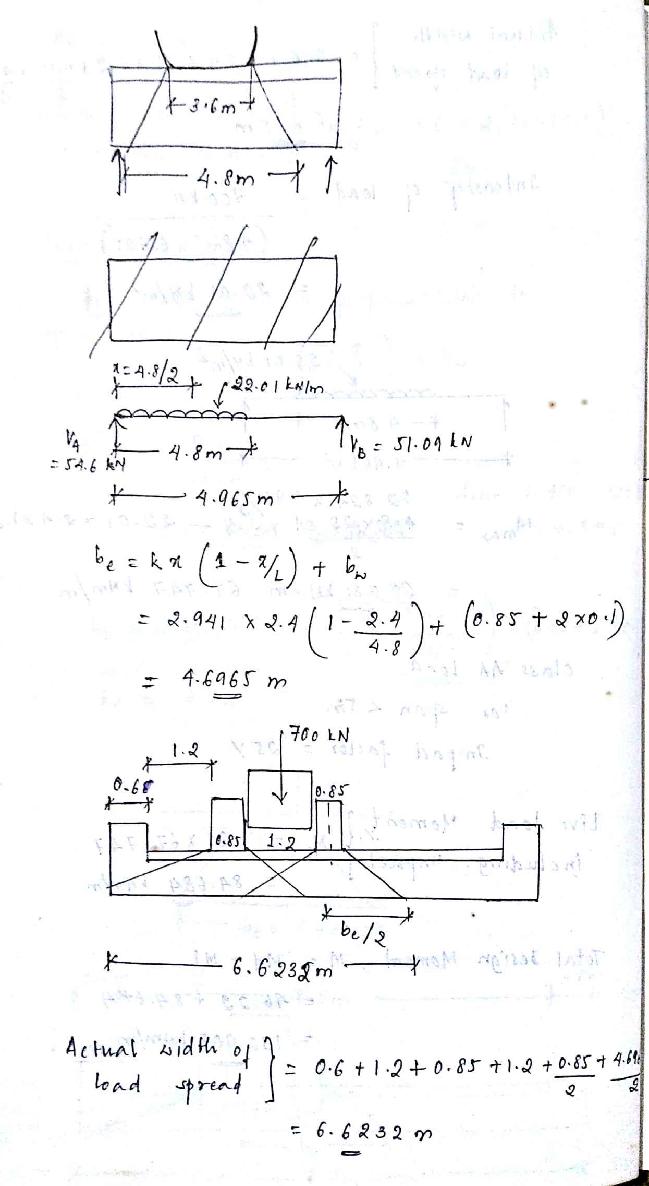 3.6m
4.8m
x = 4.8/2
22.01 kN/m
VA = 54.6 kN
4.8m
VB = 51.09 kN
4.965m
be = kx (1 - x/L) + bw
= 2.941 x 2.4 (1 - 2.4/4.8) + (0.85 + 2x0.1)
= 4.6965 m
700 kN
1.2
0.6
0.85
0.85
1.2
be/2
6.6232m
Actual width of load spread } = 0.6 + 1.2 + 0.85 + 1.2 + 0.85/2 + 4.69/2
= 6.6232 m